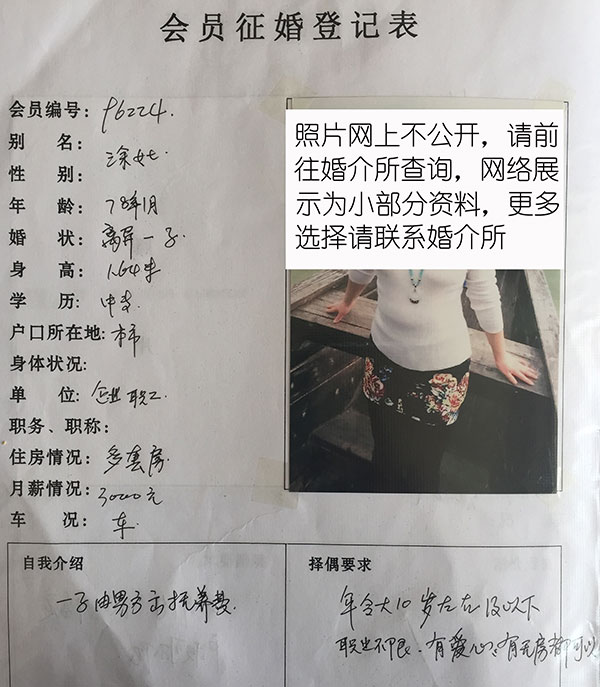 会员征婚登记表
会员编号: 96224.
别 名: 涂女士
性 别:
年 龄: 78年1月
婚 状: 离异一子
身 高: 1.64米
学 历: 中专
户口所在地: 本市
身体状况:
单 位: 企业职工
职务、职称:
住房情况: 多套房
月薪情况: 3000元
车 况: 车
照片网上不公开，请前
往婚介所查询，网络展
示为小部分资料，更多
选择请联系婚介所
自我介绍
一子由男方出抚养费.
择偶要求
年令大10岁左右及以下
职业不限.有爱心.有无房都可以